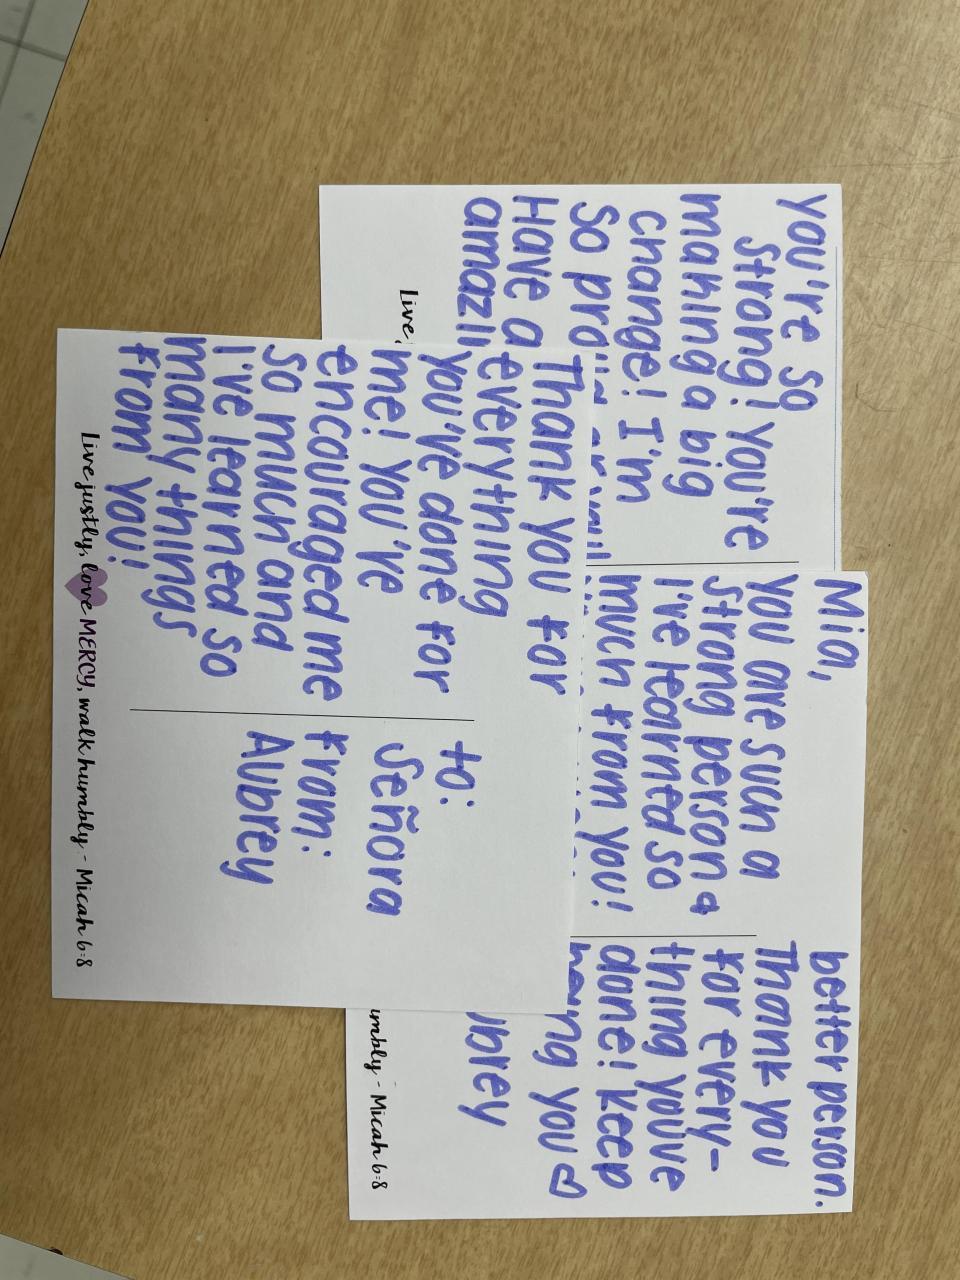 you're so
strong! you're
making a big
change! I'm
So
Have a
Live
Mia,
you are such a
strong person &
I've learned so
much from you!
better person.
Thank you
for every-
thing you've
done! Keep
you ♡
umbly - Micah 6:8
Thank you for
everything
you've done for
me! you've
encouraged me
so much and
I've learned so
many things
from you!
to:
Señora
from:
Aubrey
Live justly, love MERCY, walk humbly - Micah 6:8